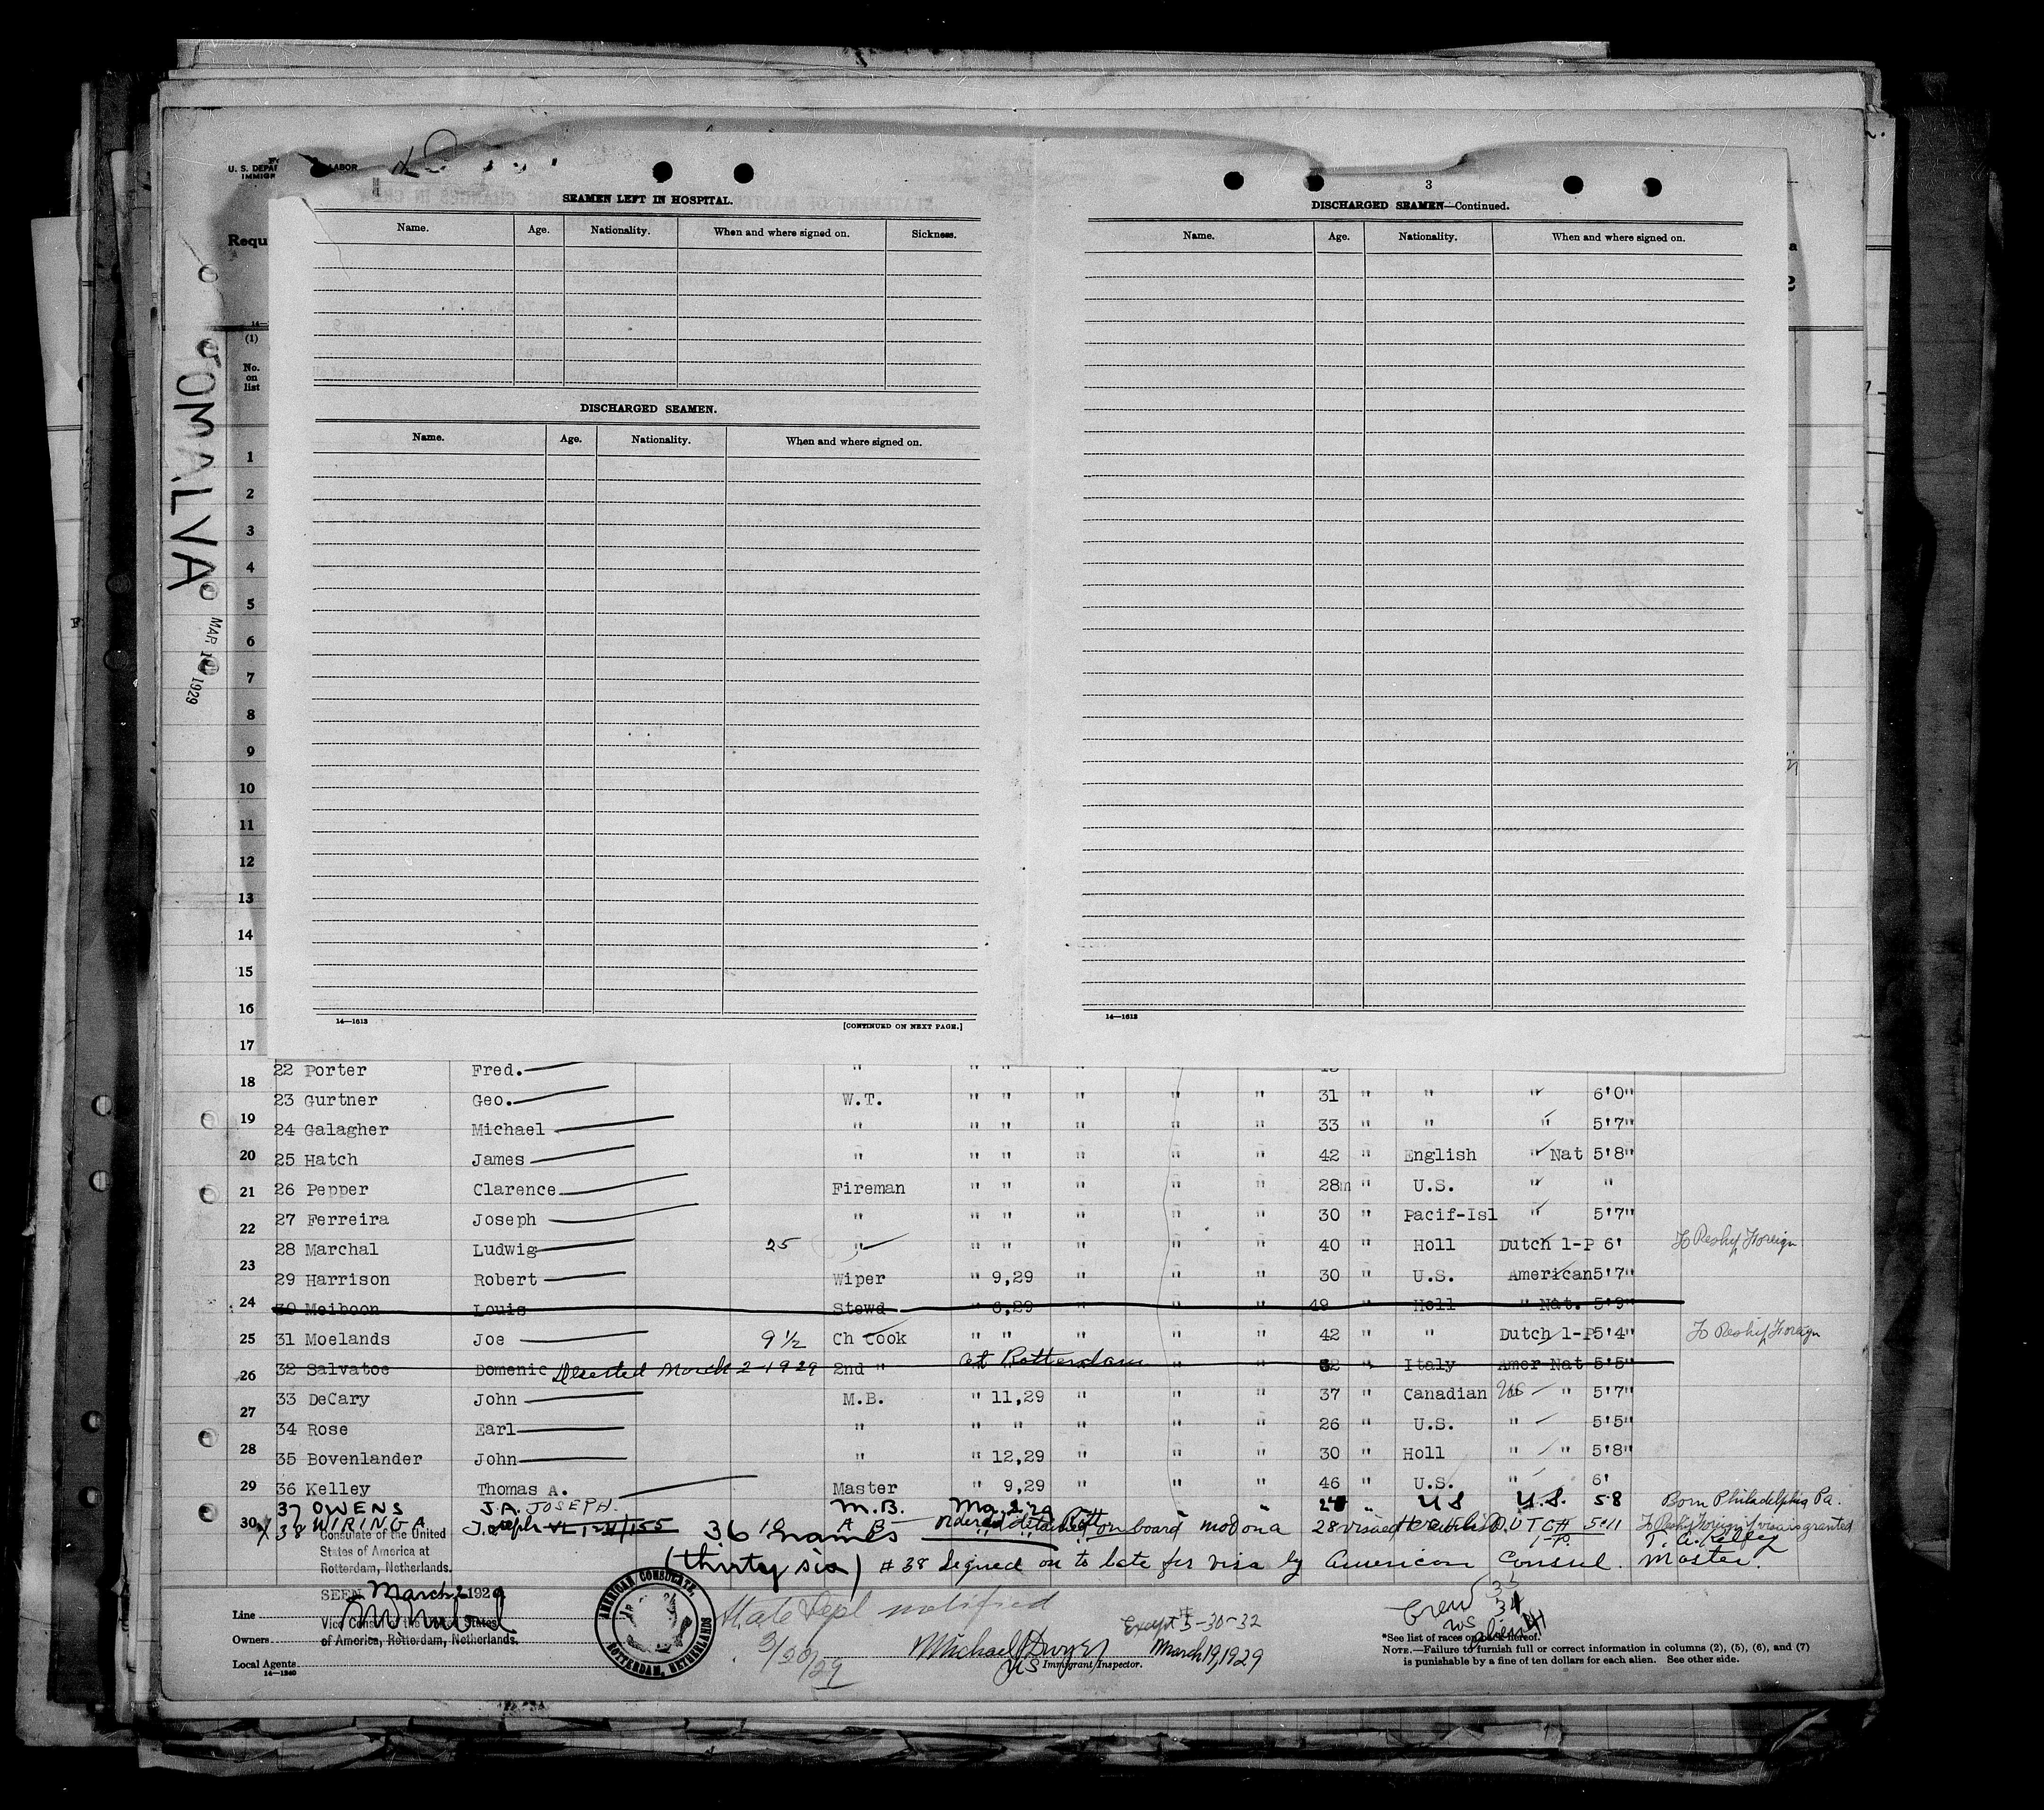 U. S. DEPA LABOR
IMMIGR
Requ
TOMALVA
MAR 19 1929
SEAMEN LEFT IN HOSPITAL.
Name. Age. Nationality. When and where signed on. Sickness.
DISCHARGED SEAMEN.
Name. Age. Nationality. When and where signed on.
14—1613
[CONTINUED ON NEXT PAGE.]
3
DISCHARGED SEAMEN—Continued.
Name. Age. Nationality. When and where signed on.
14—1613
(1)
No. on list
1
2
3
4
5
6
7
8
9
10
11
12
13
14
15
16
17
18
19
20
21
22
23
24
25
26
27
28
29
30
22 Porter Fred. " " " " " "
23 Gurtner Geo. W.T. " " " " " 31 " " " 6'0"
24 Galagher Michael " " " " " " 33 " " " 5'7"
25 Hatch James " " " " " " 42 " English " Nat 5'8"
26 Pepper Clarence Fireman " " " " " 28m " U.S. " "
27 Ferreira Joseph " " " " " " 30 " Pacif-Isl " 5'7"
28 Marchal Ludwig 25 " " " " " " 40 " Holl Dutch 1-P 6' To Reship Foreign
29 Harrison Robert Wiper " 9,29 " " " 30 " U.S. American 5'7"
30 Meiboon Louis Stewd " 6,29 " " " 49 " Holl " Nat. 5'9"
31 Moelands Joe 9 1/2 Ch Cook " " " " " 42 " " Dutch 1-P 5'4" To Reship Foreign
32 Salvatoe Domenic Deserted March 2-1929 2nd " at Rotterdam " " " Italy Amer Nat 5'5"
33 DeCary John M.B. " 11,29 " " " 37 " Canadian US " 5'7"
34 Rose Earl " " " " " " 26 " U.S. " 5'5"
35 Bovenlander John " " 12,29 " " " 30 " Holl " " 5'8"
36 Kelley Thomas A. Master " 9,29 " " " 46 " U.S. " 6'
37 OWENS J.A. JOSEPH. M.B. " " U S U.S. 5 8 Born Philadelphia Pa.
38 WIRINGA Joseph A B 28 DUTCH 5-11 To Reship Foreign if visa is granted
36 names Ordered detained on board mod ona 1-P. T. A. Kelley
(thirty six) # 38 Signed on to late for visa by American Consul. Master.
Consulate of the United
States of America at
Rotterdam, Netherlands.
SEEN March 2 1929
Vice Consul of the United States
of America, Rotterdam, Netherlands.
AMERICAN CONSULATE, ROTTERDAM, NETHERLANDS
Line
Owners
Local Agents
14—1240
State Dept notified
3/20/29
Except # 5-30-32
Michael J Dwyer March 19, 1929
US Immigrant Inspector.
Crew
US
alien
*See list of races on back hereof.
NOTE.—Failure to furnish full or correct information in columns (2), (5), (6), and (7)
is punishable by a fine of ten dollars for each alien. See other side.